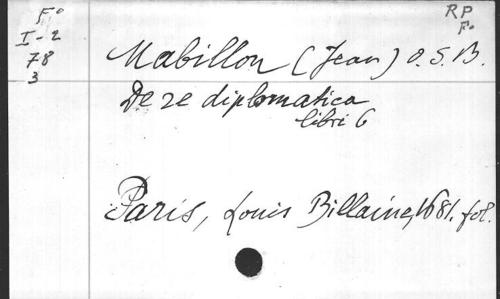 F°
I-2
78
3
RP
F°
Mabillon (Jean) O.S.B.
De re diplomatica
libri 6
Paris, Louis Billaine, 1681. fol.